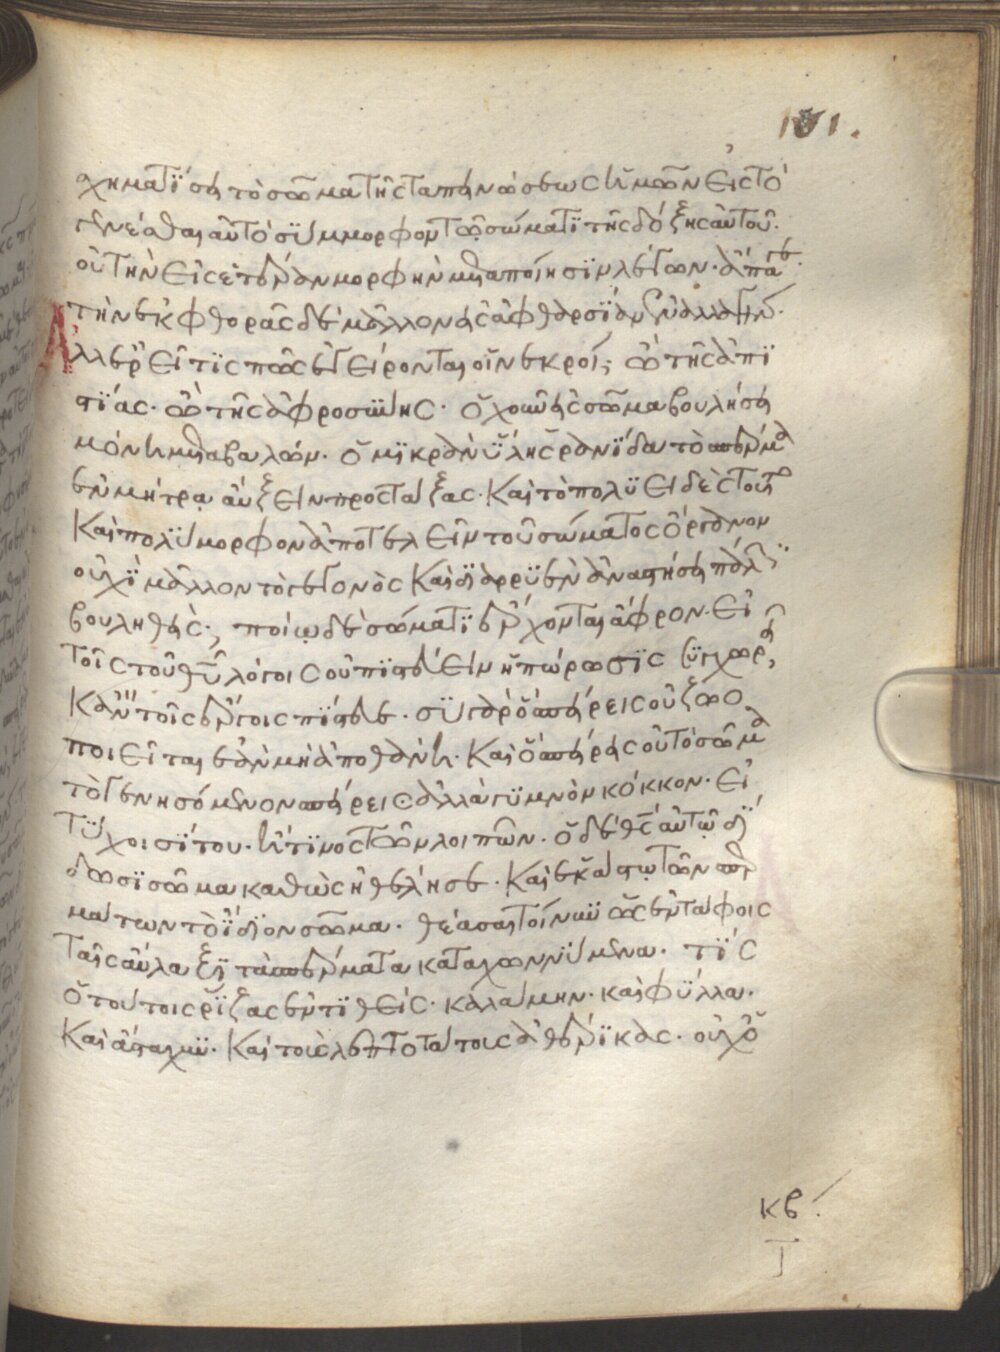 101.
σχηματίσει τὸ σῶμα τῆς ταπεινώσεως ἡμῶν εἰς τὸ
γενέσθαι αὐτὸ σύμμορφον τῶ σώματι τῆς δόξης αὐτοῦ.
οὐ τὴν εἰς ἑτέραν μορφὴν μεταποίησιν λέγων. ἄπαγε.
τὴν ἐκ φθορᾶς δὲ μᾶλλον εἰς ἀφθαρσίαν ἐναλλαγήν.
Ἀλλ' ἐρεῖ τις πῶς ἐγείρονται οἱ νεκροί; ὢ τῆς ἀπι
στίας. ὢ τῆς ἀφροσύνης. ὁ χοῦν εἰς σῶμα βουλήσει
μόνη μεταβαλών. ὁ μικρὰν ὕλης ρανίδα τὸ σπέρμα
ἐν μήτρα αὔξειν προστάξας. καὶ τὸ πολυειδὲς τοῦτο
καὶ πολύμορφον ἀποτελεῖν τοῦ σώματος ὄργανον
οὐχὶ μᾶλλον τὸ γεγονὸς καὶ διαρρυὲν ἀναστήσει πάλιν
βουληθείς; ποίω δὲ σώματι ἔρχονται ἄφρον. εἰ
τοῖς τοῦ θυ λόγοις οὐ πιστεύειν ἡ πώρωσις συγχωρεῖ,
κἂν τοῖς ἔργοις πίστευε. σὺ γὰρ ὃ σπείρεις οὐ ζωο
ποιεῖται ἐὰν μὴ ἀποθάνη. καὶ ὃ σπείρεις οὐ τὸ σῶμα
τὸ γενησόμενον σπείρεις ἀλλὰ γυμνὸν κόκκον. εἰ
τύχοι σίτου. ἤ τινος τῶν λοιπῶν. ὁ δὲ θς αὐτῶ δί
δωσι σῶμα καθὼς ἠθέλησε. καὶ ἑκάστω τῶν σπερ
μάτων τὸ ἴδιον σῶμα. θέασαι τοίνυν ὡς ἐν τάφοις
ταῖς αὔλαξι τὰ σπέρματα καταχωννύμενα. τίς
ὁ τούτοις ρίζας ἐντιθείς. καλάμην. καὶ φύλλα.
καὶ ἄσταχυν. καὶ τοὺς λεπτοτάτους ἀνθέρικας. οὐχ ὁ
κβ